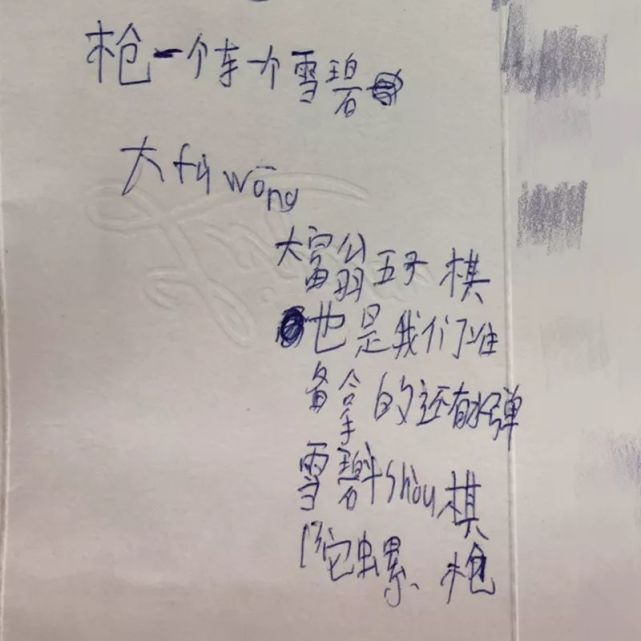 枪一个车一个雪碧
大fù wōng
大富翁五子棋
也是我们准
备拿的还有水弹
雪碧斗shòu棋
陀螺、枪